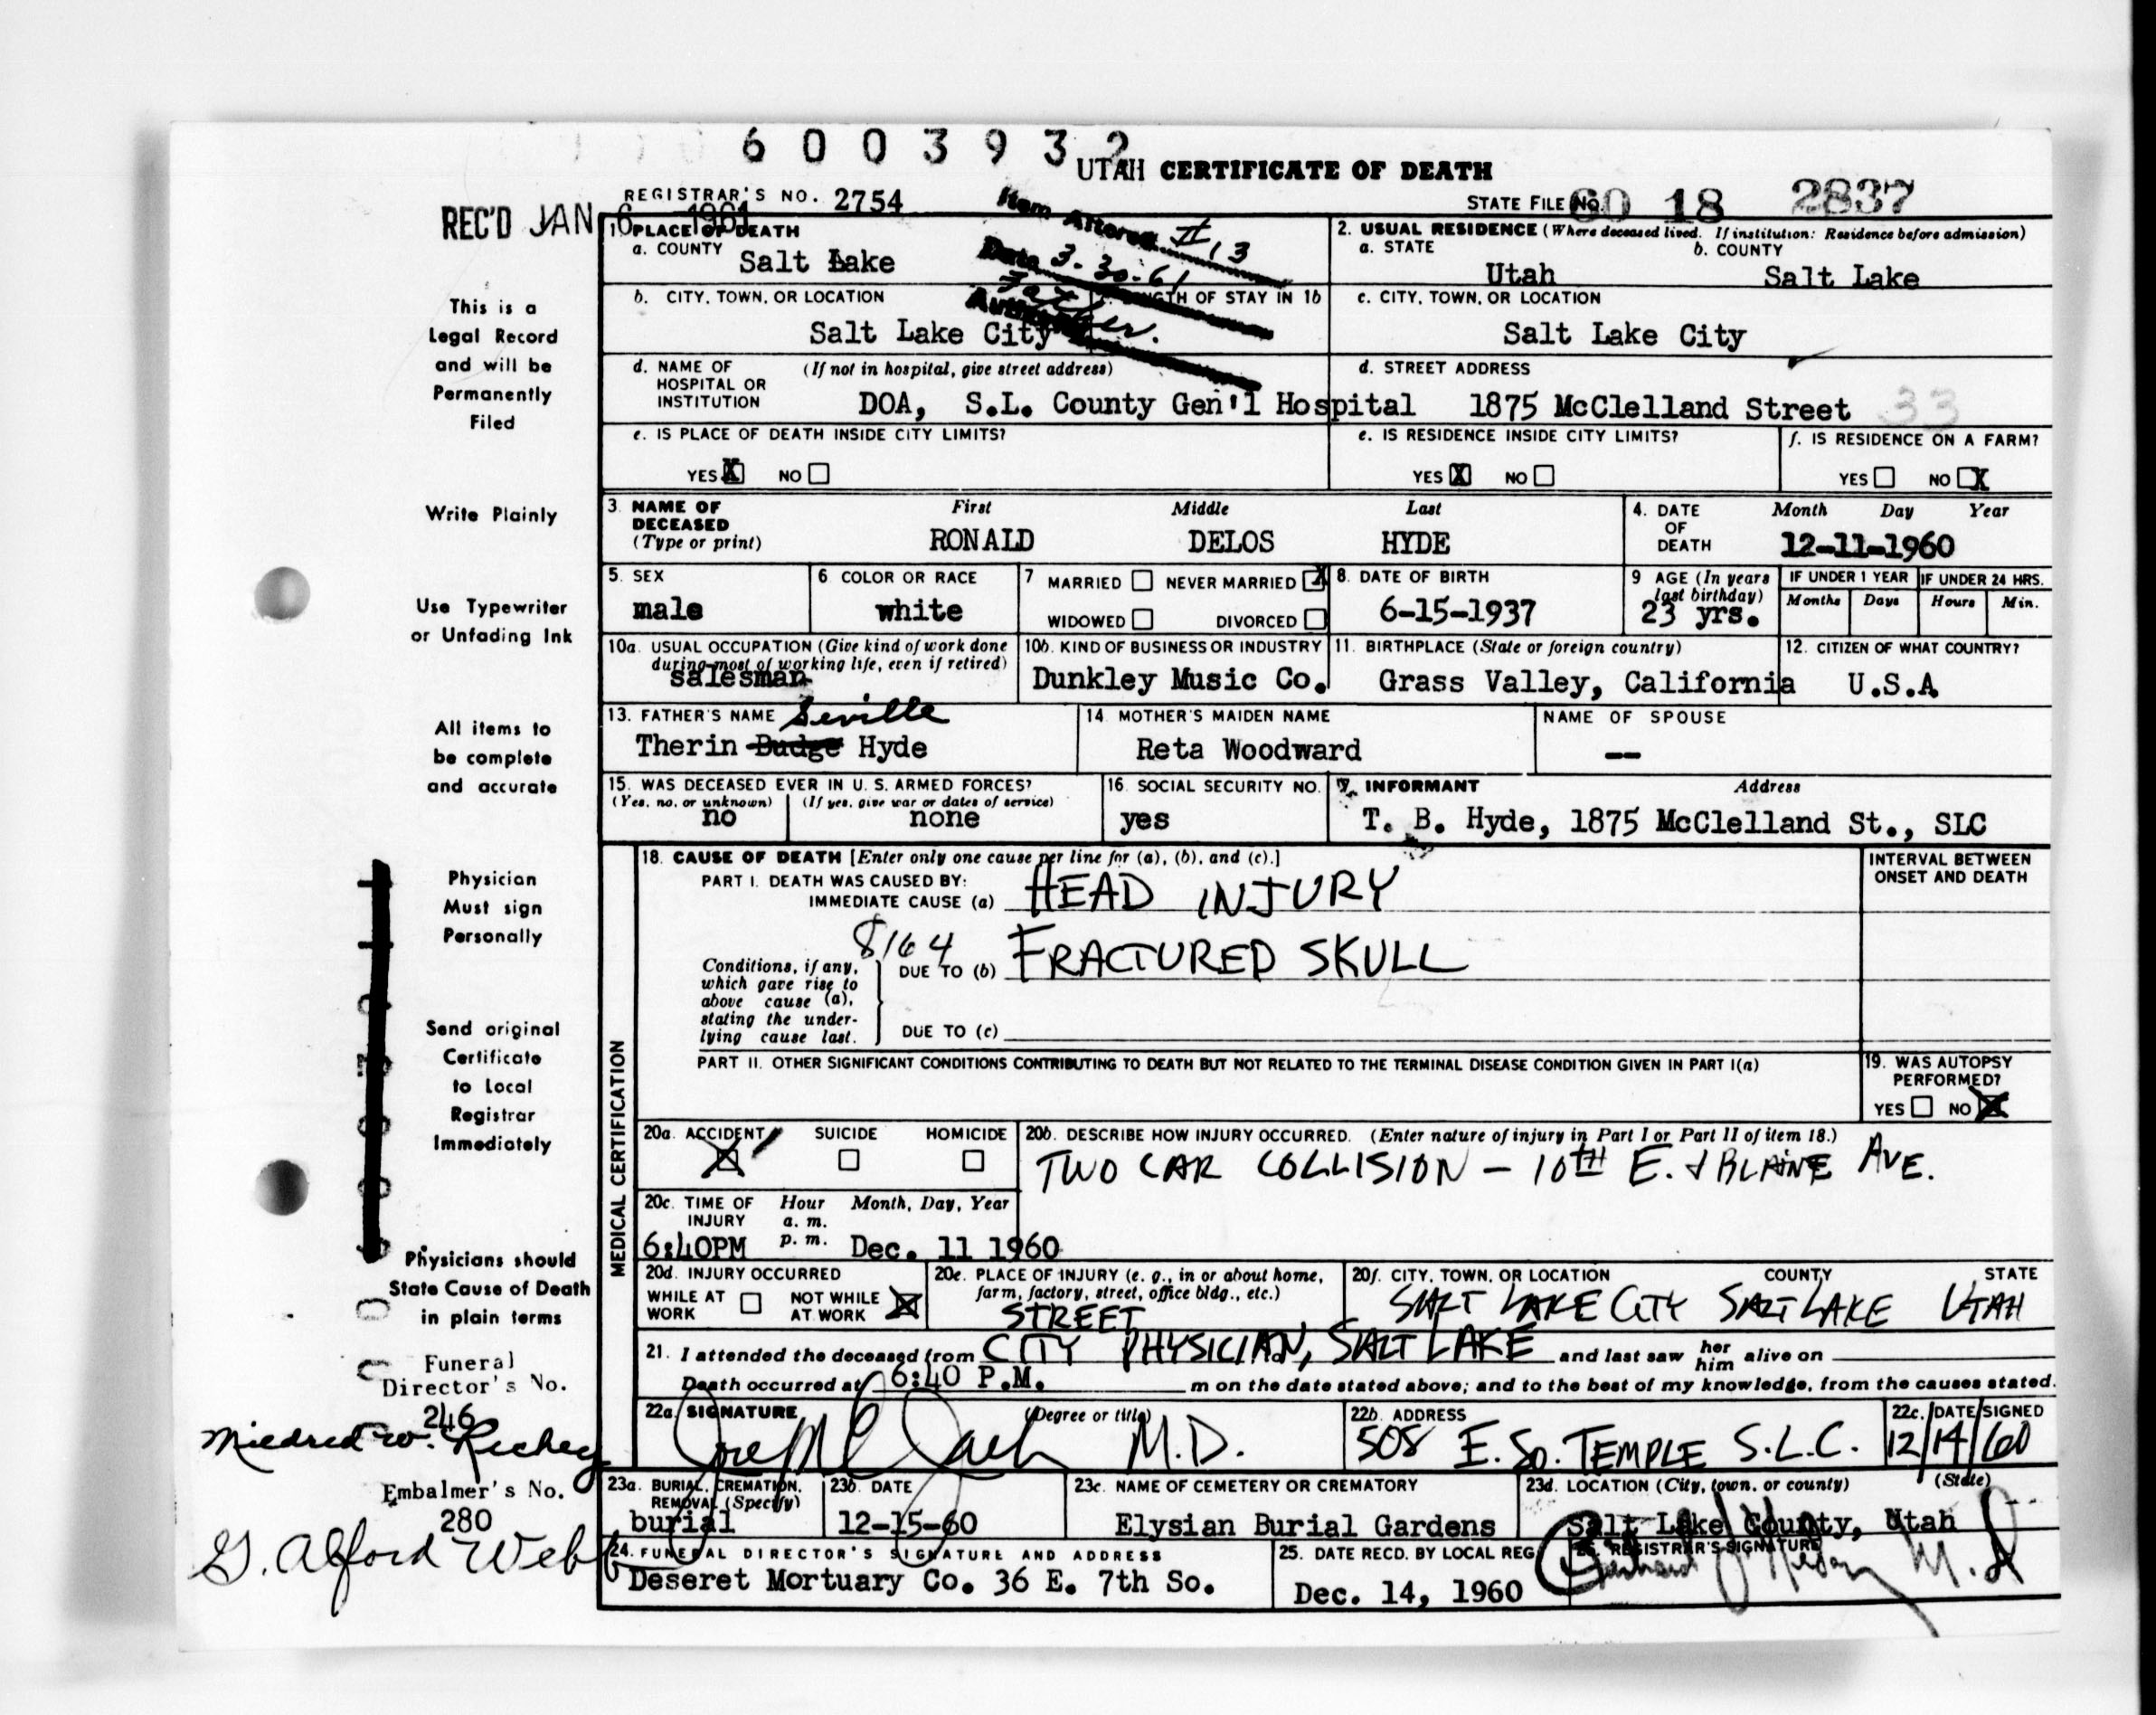 6003932
UTAH CERTIFICATE OF DEATH
REGISTRAR'S NO. 2754
STATE FILE NO. 60 18 2837
REC'D JAN 6 1961
Item Altered II 13
Date 3-30-61
Father.
1. PLACE OF DEATH
a. COUNTY Salt Lake
2. USUAL RESIDENCE (Where deceased lived. If institution: Residence before admission)
a. STATE Utah b. COUNTY Salt Lake
b. CITY, TOWN, OR LOCATION Salt Lake City
LENGTH OF STAY IN 1b
c. CITY, TOWN, OR LOCATION Salt Lake City
d. NAME OF HOSPITAL OR INSTITUTION (If not in hospital, give street address)
DOA, S.L. County Gen'l Hospital
d. STREET ADDRESS
1875 McClelland Street 33
e. IS PLACE OF DEATH INSIDE CITY LIMITS?
YES X NO
e. IS RESIDENCE INSIDE CITY LIMITS?
YES X NO
f. IS RESIDENCE ON A FARM?
YES NO X
3. NAME OF DECEASED (Type or print)
First Middle Last
RONALD DELOS HYDE
4. DATE OF DEATH Month Day Year
12-11-1960
5. SEX male
6. COLOR OR RACE white
7 MARRIED NEVER MARRIED X
WIDOWED DIVORCED
8. DATE OF BIRTH 6-15-1937
9 AGE (In years last birthday) 23 yrs.
IF UNDER 1 YEAR Months Days
IF UNDER 24 HRS. Hours Min.
10a. USUAL OCCUPATION (Give kind of work done during most of working life, even if retired)
salesman
10b. KIND OF BUSINESS OR INDUSTRY
Dunkley Music Co.
11. BIRTHPLACE (State or foreign country)
Grass Valley, California
12. CITIZEN OF WHAT COUNTRY?
U.S.A
13. FATHER'S NAME Seville
Therin Budge Hyde
14. MOTHER'S MAIDEN NAME
Reta Woodward
NAME OF SPOUSE
--
15. WAS DECEASED EVER IN U. S. ARMED FORCES?
(Yes, no, or unknown) (If yes, give war or dates of service)
no none
16. SOCIAL SECURITY NO.
yes
17. INFORMANT Address
T. B. Hyde, 1875 McClelland St., SLC
MEDICAL CERTIFICATION
18. CAUSE OF DEATH [Enter only one cause per line for (a), (b), and (c).]
INTERVAL BETWEEN ONSET AND DEATH
PART I. DEATH WAS CAUSED BY:
IMMEDIATE CAUSE (a) HEAD INJURY
8164
Conditions, if any, which gave rise to above cause (a), stating the underlying cause last.
DUE TO (b) FRACTURED SKULL
DUE TO (c)
PART II. OTHER SIGNIFICANT CONDITIONS CONTRIBUTING TO DEATH BUT NOT RELATED TO THE TERMINAL DISEASE CONDITION GIVEN IN PART I(a)
19. WAS AUTOPSY PERFORMED?
YES NO X
20a. ACCIDENT SUICIDE HOMICIDE
X
20b. DESCRIBE HOW INJURY OCCURRED. (Enter nature of injury in Part I or Part II of item 18.)
TWO CAR COLLISION - 10TH E. & BLAINE AVE.
20c. TIME OF INJURY Hour a. m. p. m. Month, Day, Year
6:40PM Dec. 11 1960
20d. INJURY OCCURRED
WHILE AT WORK NOT WHILE AT WORK X
20e. PLACE OF INJURY (e. g., in or about home, farm, factory, street, office bldg., etc.)
STREET
20f. CITY, TOWN, OR LOCATION COUNTY STATE
SALT LAKE CITY SALT LAKE UTAH
21. I attended the deceased from CITY PHYSICIAN, SALT LAKE and last saw her him alive on
Death occurred at 6:40 P.M. m on the date stated above; and to the best of my knowledge, from the causes stated.
22a. SIGNATURE (Degree or title)
M.D.
22b. ADDRESS
508 E. So. TEMPLE S.L.C.
22c. DATE SIGNED
12/14/60
23a. BURIAL, CREMATION, REMOVAL (Specify)
burial
23b. DATE
12-15-60
23c. NAME OF CEMETERY OR CREMATORY
Elysian Burial Gardens
23d. LOCATION (City, town, or county) (State)
Salt Lake County, Utah
24. FUNERAL DIRECTOR'S SIGNATURE AND ADDRESS
Deseret Mortuary Co. 36 E. 7th So.
25. DATE RECD. BY LOCAL REG.
Dec. 14, 1960
REGISTRAR'S SIGNATURE
M.D
This is a
Legal Record
and will be
Permanently
Filed
Write Plainly
Use Typewriter
or Unfading Ink
All items to
be complete
and accurate
Physician
Must sign
Personally
Send original
Certificate
to Local
Registrar
Immediately
Physicians should
State Cause of Death
in plain terms
Funeral
Director's No.
246
Mildred W. Richey
Embalmer's No.
280
G. Alford Webb